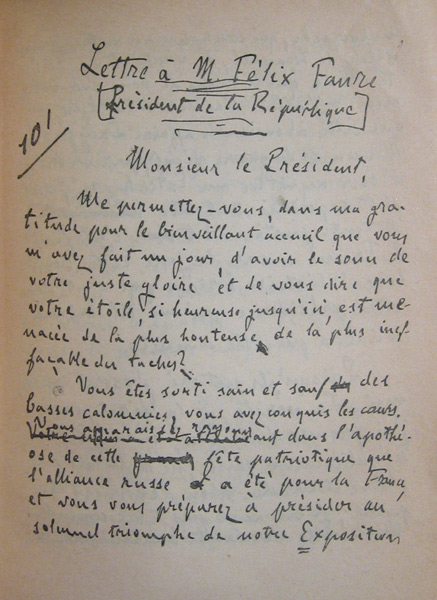 Lettre à M. Félix Faure
[Président de la République]
10'
Monsieur le Président,
Me permettez-vous, dans ma gra-
titude pour le bienveillant accueil que vous
m'avez fait un jour d'avoir le souci de
votre juste gloire et de vous dire que
votre étoile, si heureuse jusqu'ici, est me-
nacée de la plus honteuse, de la plus inef-
façable des taches?
Vous êtes sorti sain et sauf des
basses calomnies, vous avez conquis les cœurs.
Vous apparaissez rayonnant dans l'apothé-
ose de cette fête patriotique que
l'alliance russe a été pour la France,
et vous vous préparez à présider au
solennel triomphe de notre Exposition